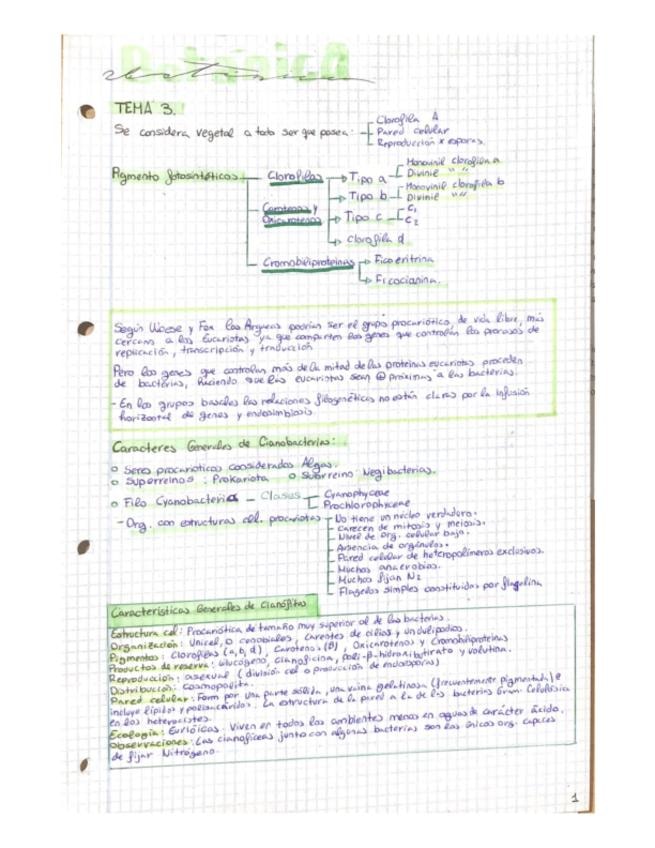 Botánica
botánica
TEMA 3.
Se considera vegetal a todo ser que posea:
Clorofila A
Pared celular
Reproducción x esporas.
Pigmento fotosintéticos
Clorofilas
Tipo a
Monovinil clorofila a
Divinil " "
Tipo b
Monovinil clorofila b
Divinil " "
Carotenos y
Oxicarotenos
Tipo c
C1
C2
Clorofila d
Cromobiliproteinas
Ficoeritrina
Ficocianina.
Según Woese y Fox las Arqueas podrían ser el grupo procariótico, de vida libre, más
cercano a los Eucariotas ya que comparten los genes que controlan los procesos de
replicación, transcripción y traducción
Pero los genes que controlan más de la mitad de las proteinas eucariotas proceden
de bacterias, haciendo que las eucariotas sean ⊕ próximas a las bacterias.
- En los grupos basales las relaciones filogenéticas no están claras por la infusión
horizontal de genes y endosimbiosis.
Caracteres Generales de Cianobacterias:
o Seres procarióticos considerados Algas.
o Superreinos: Prokariota o Subrreino Negibacterias.
o Filo Cyanobacteria - Clases
Cyanophyceae
Prochlorophyceae
- Org. con estructuras cel. procariotas
No tiene un núcleo verdadero.
Carecen de mitosis y meiosis.
Nivel de org. celular bajo.
Ausencia de orgánulos.
Pared celular de heteropolímeros exclusivos.
Muchos anaerobios.
Muchos fijan N2
Flagelos simples constituidos por flagelina
Características Generales de Cianófitas
Estructura cel: Procariótica de tamaño muy superior al de las bacterias.
Organización: Unicel. o cenobiales, carentes de cilios y undulipodios.
Pigmentos: Clorofilas (a, b, d), Carotenos (β), Oxicarotenos y Cromobiliproteinas
Productos de reserva: Glucógeno, Cianoficina, poli-β-hidroxibutirato y volutina.
Reproducción: asexual (división cel o producción de endosporas)
Distribución: Cosmopolita.
Pared celular: Form por una parte sólida, una vaina gelatinosa (frecuentemente pigmentada) e
incluye lípidos y polisacáridos. La estructura de la pared a la de las bacterias Gram. Celulósica
en los heterocistes.
Ecología: Eurioicas. Viven en todos los ambientes menos en aguas de carácter ácido.
Observaciones: Las cianofíceas junto con algunas bacterias son los únicos org. capaces
de fijar Nitrógeno.
1